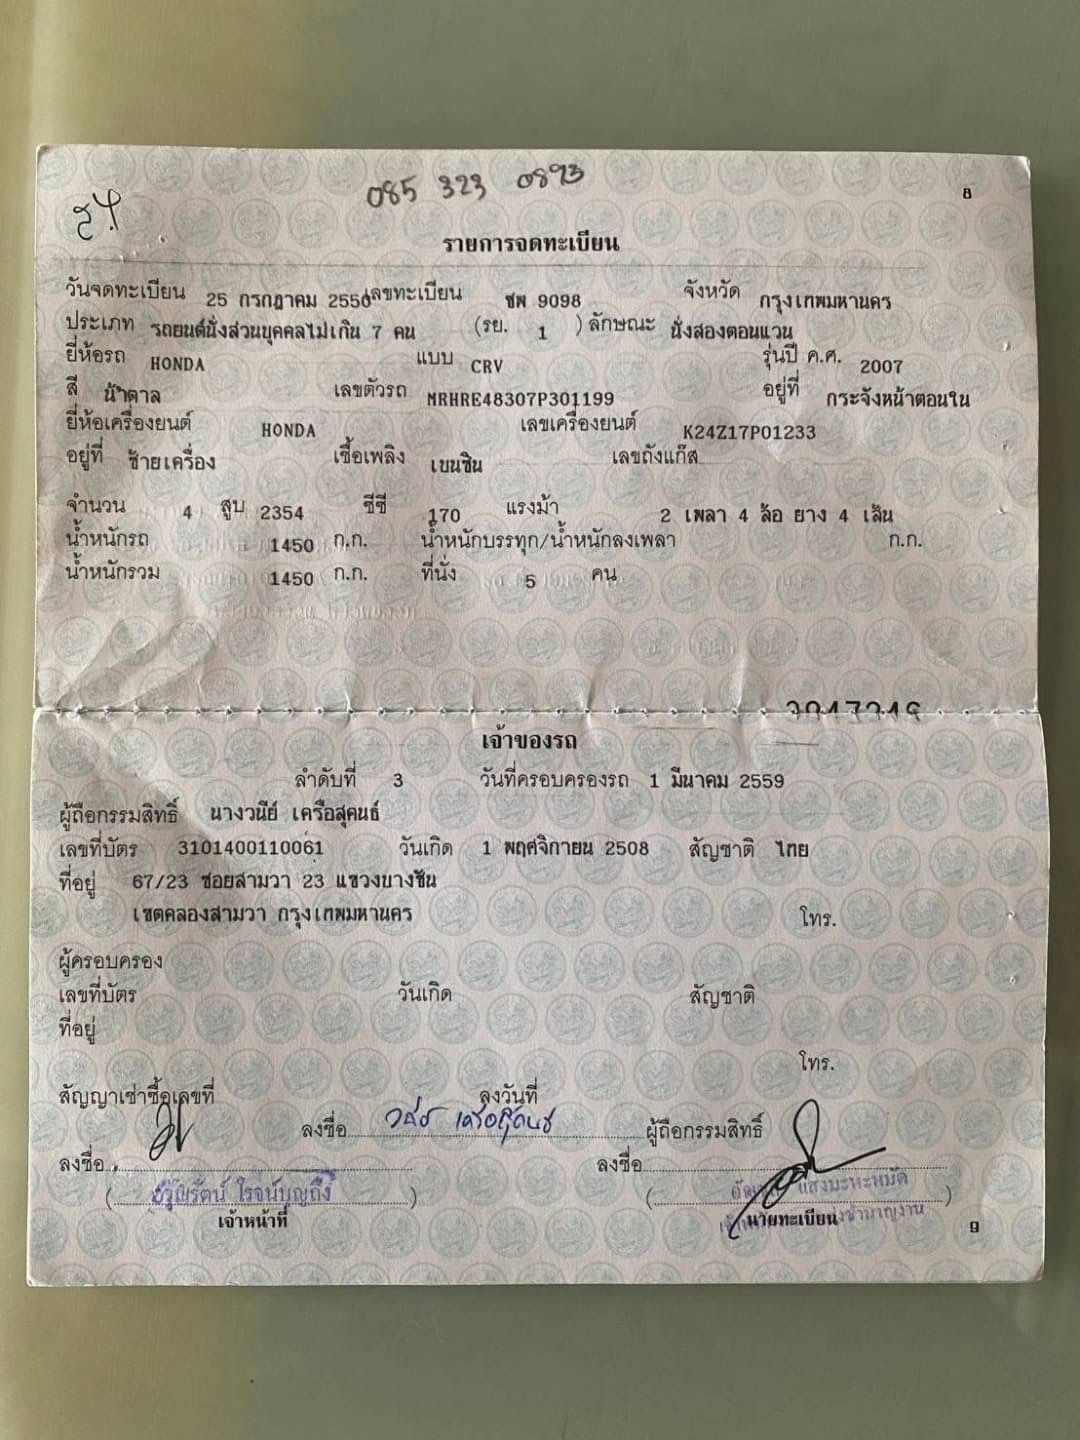 085 323 0893
8
รายการจดทะเบียน
วันจดทะเบียน 25 กรกฎาคม 2550 เลขทะเบียน ชพ 9098 จังหวัด กรุงเทพมหานคร
ประเภท รถยนต์นั่งส่วนบุคคลไม่เกิน 7 คน (รย. 1 ) ลักษณะ นั่งสองตอนแวน
ยี่ห้อรถ HONDA แบบ CRV รุ่นปี ค.ศ. 2007
สี น้ำตาล เลขตัวรถ MRHRE48307P301199 อยู่ที่ กระจังหน้าตอนใน
ยี่ห้อเครื่องยนต์ HONDA เลขเครื่องยนต์ K24Z17P01233
อยู่ที่ ซ้ายเครื่อง เชื้อเพลิง เบนซิน เลขถังแก๊ส
จำนวน 4 สูบ 2354 ซีซี 170 แรงม้า 2 เพลา 4 ล้อ ยาง 4 เส้น
น้ำหนักรถ 1450 ก.ก. น้ำหนักบรรทุก/น้ำหนักลงเพลา ก.ก.
น้ำหนักรวม 1450 ก.ก. ที่นั่ง 5 คน
เจ้าของรถ
ลำดับที่ 3 วันที่ครอบครองรถ 1 มีนาคม 2559
ผู้ถือกรรมสิทธิ์ นางวนีย์ เครือสุคนธ์
เลขที่บัตร 3101400110061 วันเกิด 1 พฤศจิกายน 2508 สัญชาติ ไทย
ที่อยู่ 67/23 ซอยสามวา 23 แขวงบางชัน
เขตคลองสามวา กรุงเทพมหานคร โทร.
ผู้ครอบครอง
เลขที่บัตร วันเกิด สัญชาติ
ที่อยู่
โทร.
สัญญาเช่าซื้อเลขที่ ลงวันที่
ลงชื่อ วนีย์ เครือสุคนธ์ ผู้ถือกรรมสิทธิ์
ลงชื่อ ลงชื่อ
( โรจน์บุญถึง ) ( แสงมะหะหมัด )
เจ้าหน้าที่ นายทะเบียน
9